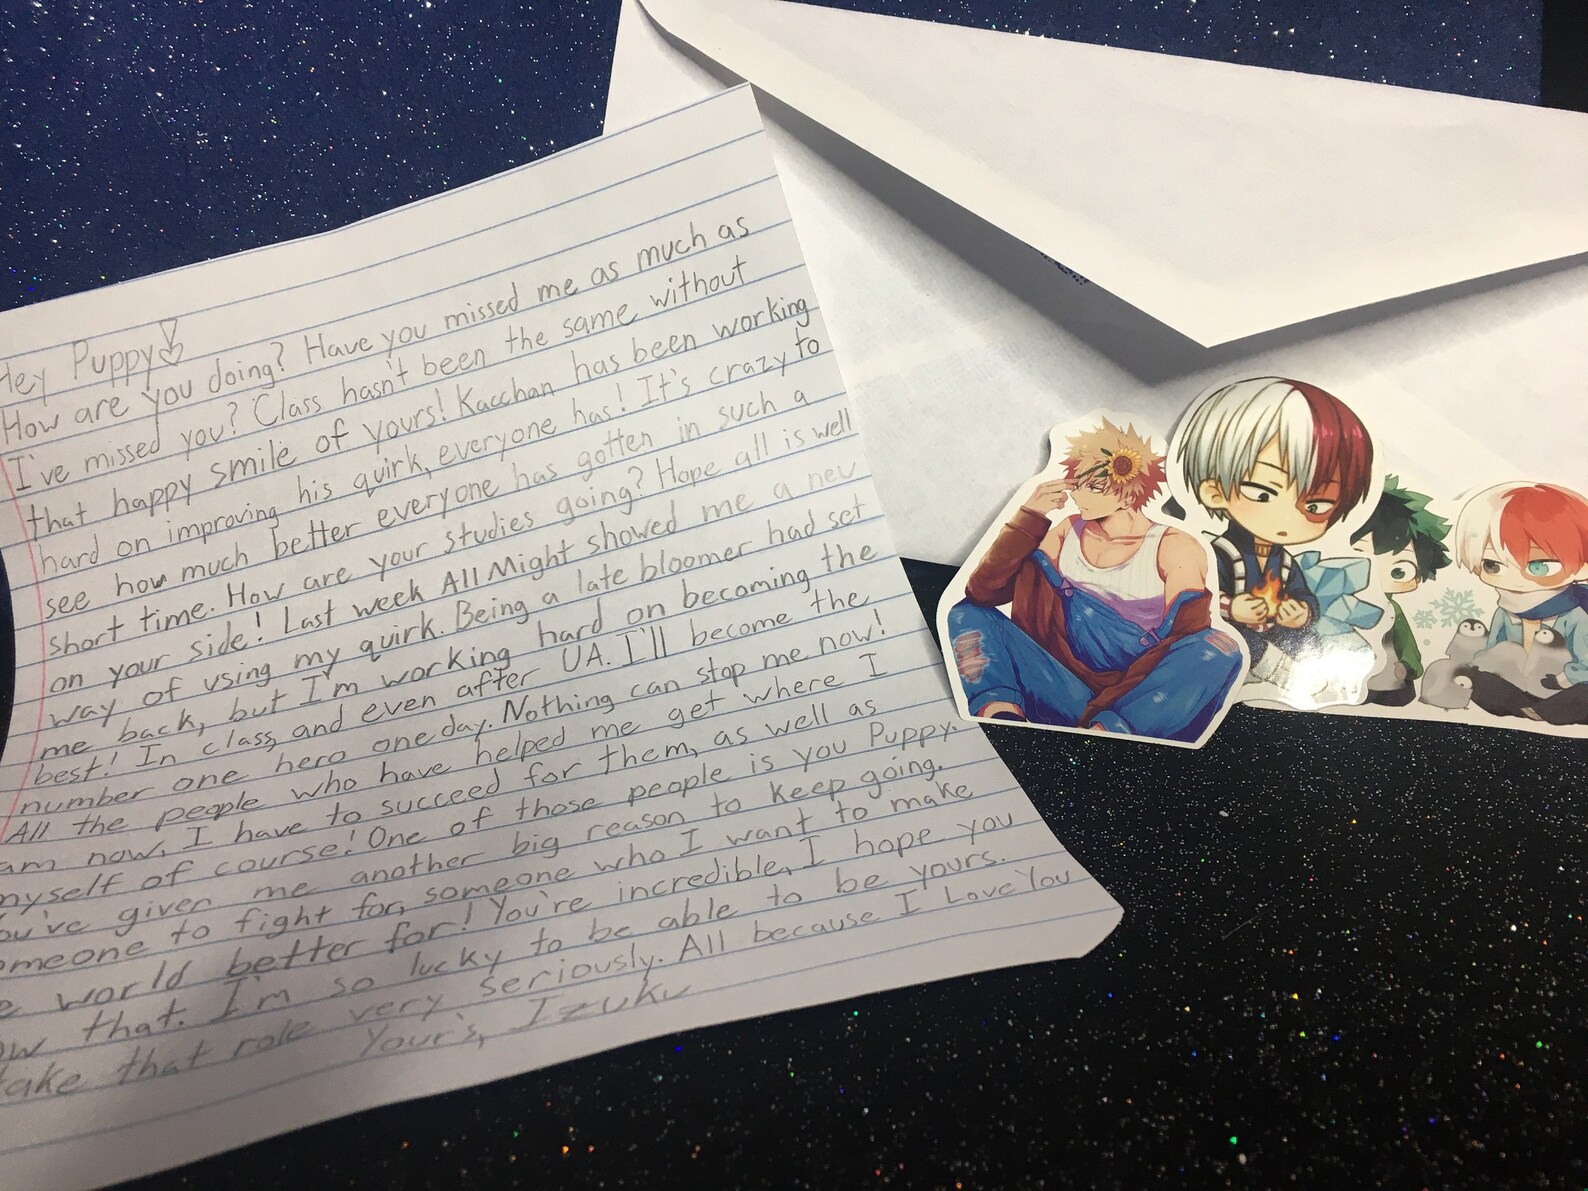 Hey Puppy
How are you doing? Have you missed me as much as
I've missed you? Class hasn't been the same without
that happy smile of yours! Kacchan has been working
hard on improving his quirk, everyone has! It's crazy to
see how much better everyone has gotten in such a
short time. How are your studies going? Hope all is well
on your side! Last week All Might showed me a new
way of using my quirk. Being a late bloomer had set
me back, but I'm working hard on becoming the
best! In class, and even after UA. I'll become the
number one hero one day. Nothing can stop me now!
All the people who have helped me get where I
am now, I have to succeed for them, as well as
myself of course! One of those people is you Puppy.
You've given me another big reason to keep going.
someone to fight for, someone who I want to make
world better for! You're incredible, I hope you
that. I'm so lucky to be able to be yours.
take that role very seriously. All because I Love You
Your's, Izuku